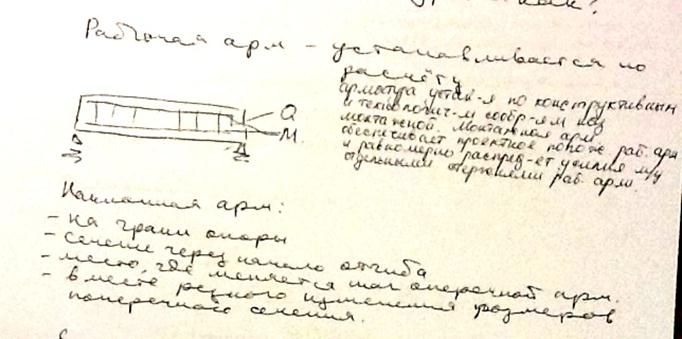 Рабочая арм – устанавливается по
расчёту
арматура устан-я по конструктивным
и технологич-м сообр-ям наз
монтажной. Монтажная арм
обеспечивает проектное полож раб. арм
и равномерно распред-ет усилия м/у
отдельными стержнями раб. арм.
Q
M
Наклонная арм:
- на грани опоры
- сечение через начало отгиба
- место, где меняется шаг поперечной арм.
- в месте резкого изменения размеров
поперечного сечения.